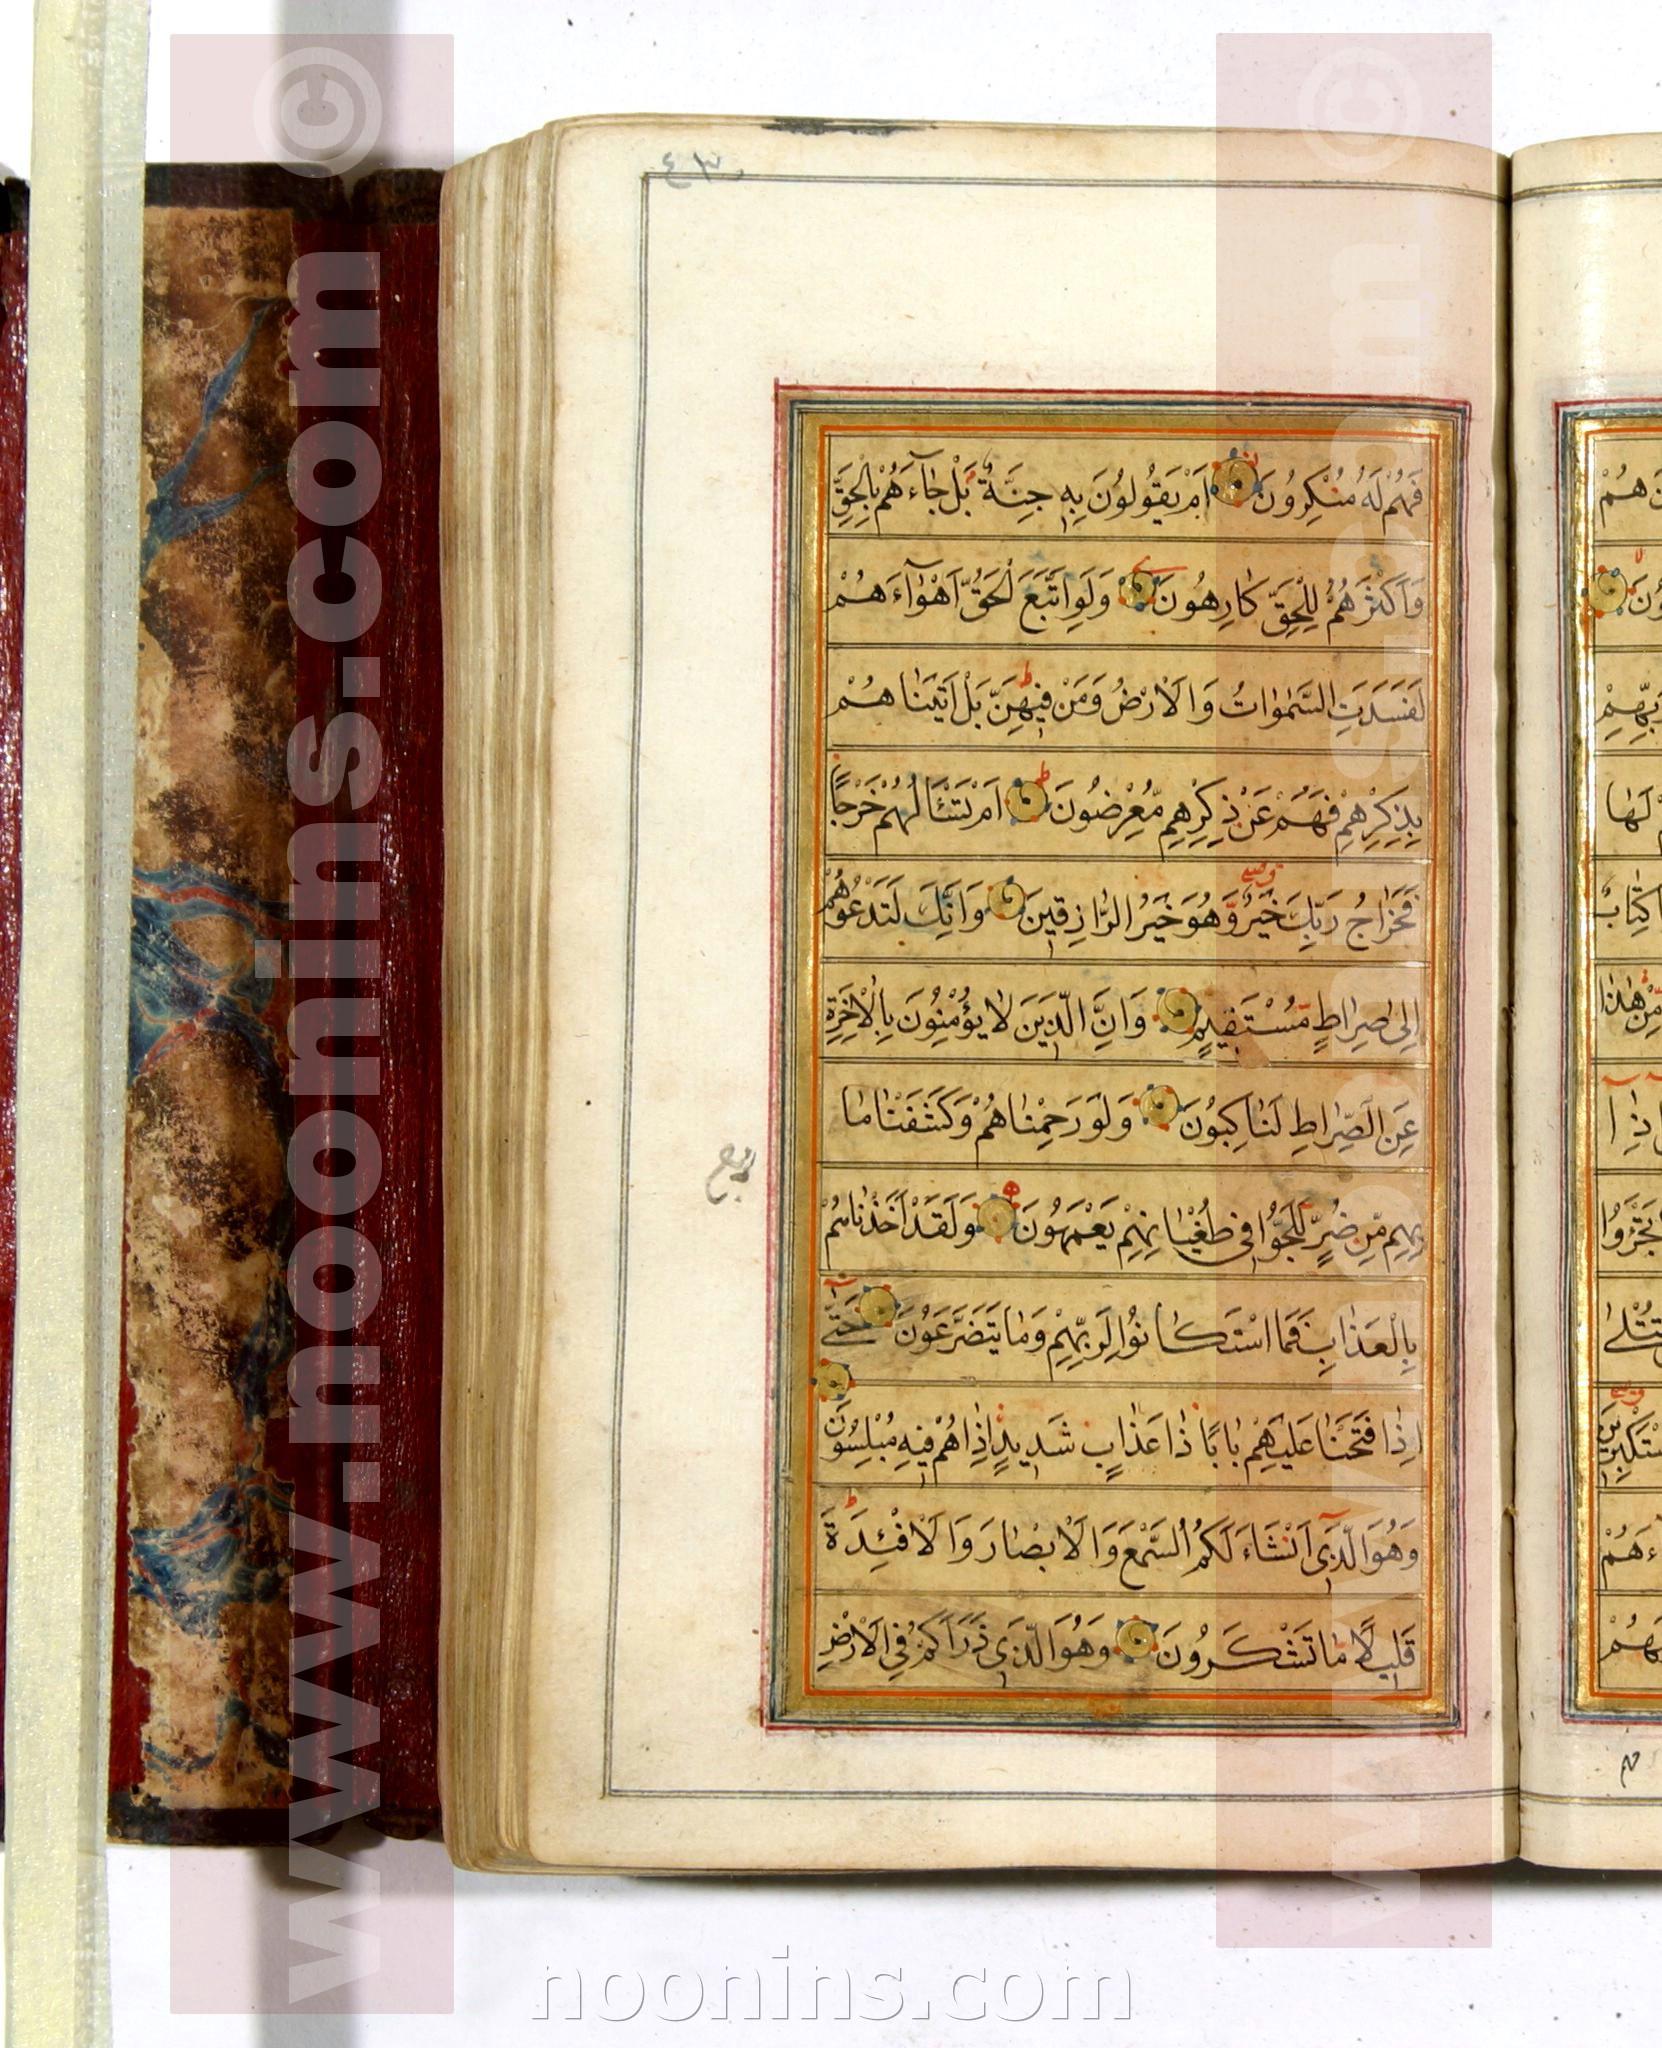 فَهُمْ لَهُ مُنْكِرُونَ اَمْ يَقُولُونَ بِهِ جِنَّةٌ بَلْ جٰٓاءَهُمْ بِالْحَقِّ
وَاَكْثَرُهُمْ لِلْحَقِّ كٰارِهُونَ وَلَوِ اتَّبَعَ الْحَقُّ اَهْوٰٓاءَهُمْ
لَفَسَدَتِ السَّمٰوٰاتُ وَالْاَرْضُ وَمَنْ فِيهِنَّ بَلْ اَتَيْنٰاهُمْ
بِذِكْرِهِمْ فَهُمْ عَنْ ذِكْرِهِمْ مُعْرِضُونَ اَمْ تَسْئَلُهُمْ خَرْجًا
فَخَرٰاجُ رَبِّكَ خَيْرٌ وَهُوَ خَيْرُ الرّٰازِقِينَ وَاِنَّكَ لَتَدْعُوهُمْ
اِلىٰ صِرٰاطٍ مُسْتَقِيمٍ وَاِنَّ الَّذِينَ لاٰ يُؤْمِنُونَ بِالْاٰخِرَةِ
عَنِ الصِّرٰاطِ لَنٰاكِبُونَ وَلَوْ رَحِمْنٰاهُمْ وَكَشَفْنٰا مٰا
بِهِمْ مِنْ ضُرٍّ لَلَجُّوا فِي طُغْيٰانِهِمْ يَعْمَهُونَ وَلَقَدْ اَخَذْنٰاهُمْ
بِالْعَذٰابِ فَمَا اسْتَكٰانُوا لِرَبِّهِمْ وَمٰا يَتَضَرَّعُونَ حَتّٰى
اِذٰا فَتَحْنٰا عَلَيْهِمْ بٰابًا ذٰا عَذٰابٍ شَدِيدٍ اِذٰا هُمْ فِيهِ مُبْلِسُونَ
وَهُوَ الَّذِي اَنْشَاَ لَكُمُ السَّمْعَ وَالْاَبْصٰارَ وَالْاَفْئِدَةَ
قَلِيلًا مٰا تَشْكُرُونَ وَهُوَ الَّذِي ذَرَاَكُمْ فِي الْاَرْضِ
www.noonins.com ©
noonins.com